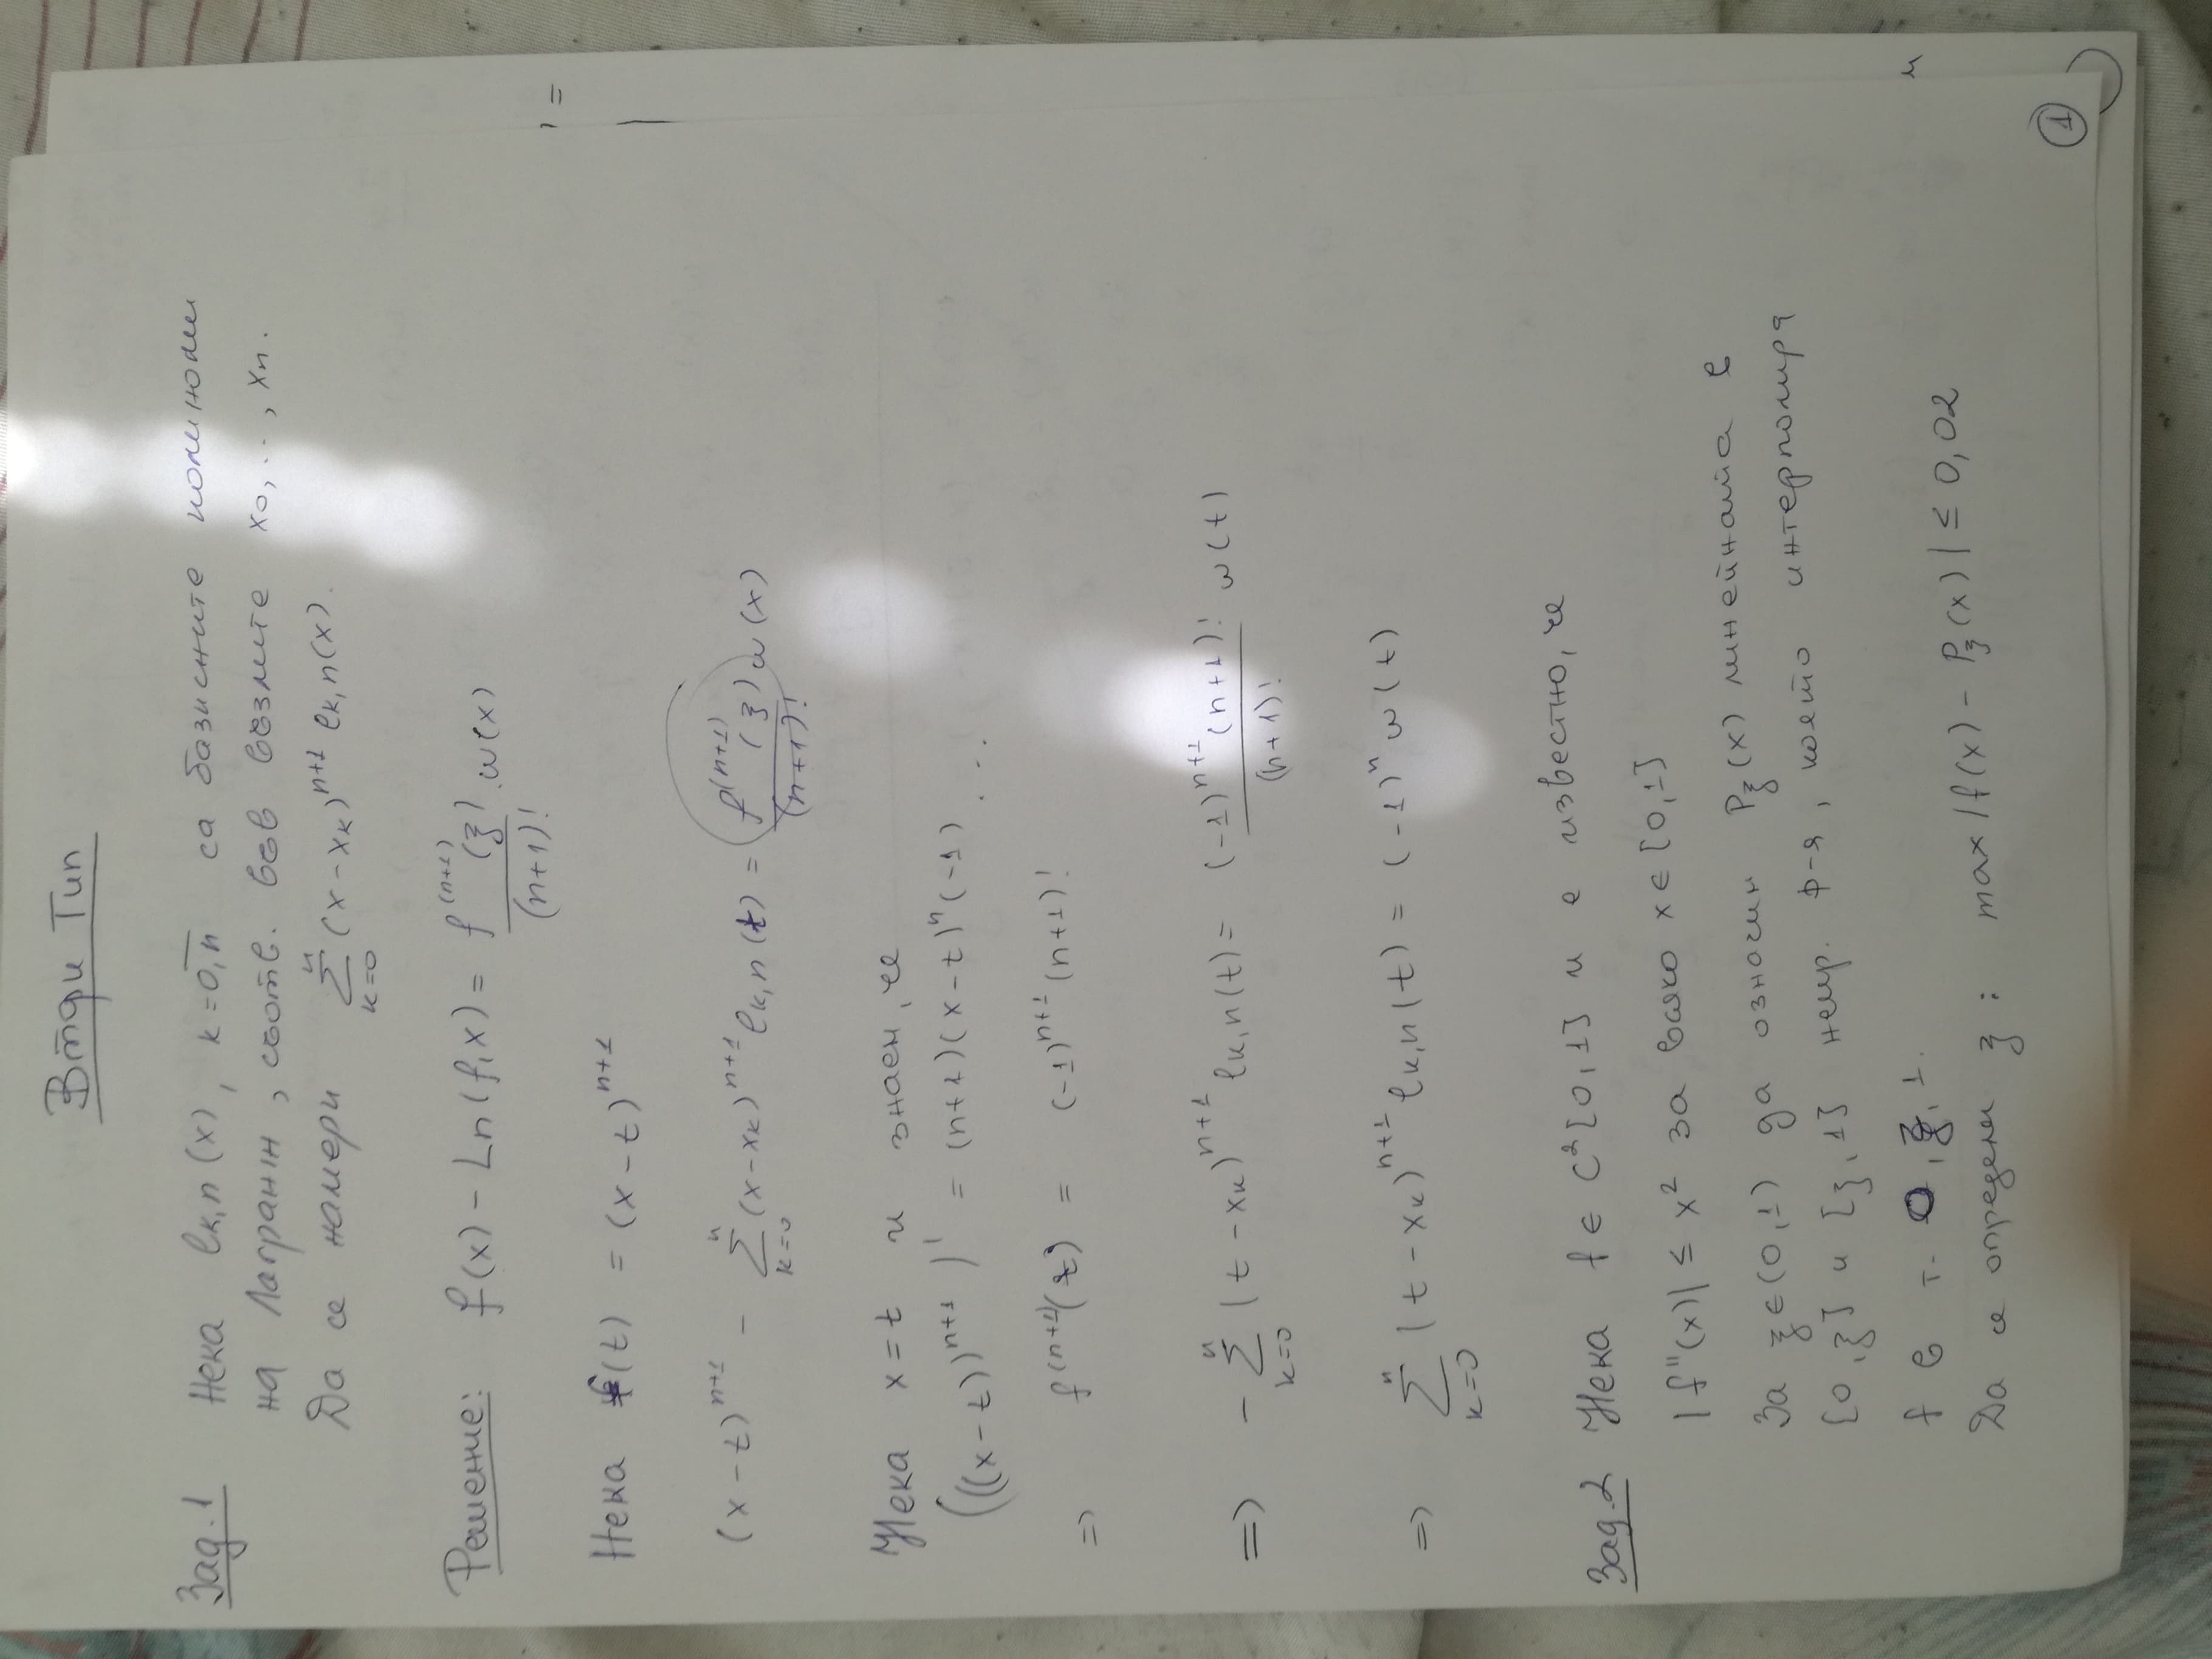 Втори Тип
Зад.1 Нека lk,n(x), k=0,n са базисните полиноми
на Лагранж, съотв. във възлите x0,..,xn.
Да се намери n∑k=0 (x-xk)^n+1 lk,n(x).
Решение: f(x) - Ln(f,x) = f^(n+1)(ξ)/(n+1)! . ω(x)
Нека f(t) = (x-t)^n+1
(x-t)^n+1 - n∑k=0 (x-xk)^n+1 lk,n(t) = f^(n+1)(ξ)/(n+1)! ω(x)
Нека x=t и знаем, че
(((x-t))^n+1)' = (n+1)(x-t)^n(-1) ...
=> f^(n+1)(t) = (-1)^n+1 (n+1)!
=> - n∑k=0 (t-xk)^n+1 lk,n(t) = (-1)^n+1(n+1)!/(n+1)! ω(t)
=> n∑k=0 (t-xk)^n+1 lk,n(t) = (-1)^n ω(t)
Зад.2 Нека f∈C²[0,1] и е известно, че
|f''(x)| ≤ x² за всяко x∈[0,1]
За ξ∈(0,1) да означим Pξ(x) линейната в
[0,ξ] и [ξ,1] непр. ф-я, която интерполира
f в т. 0,ξ,1.
Да се определи ξ: max|f(x) - Pξ(x)| ≤ 0,02
1